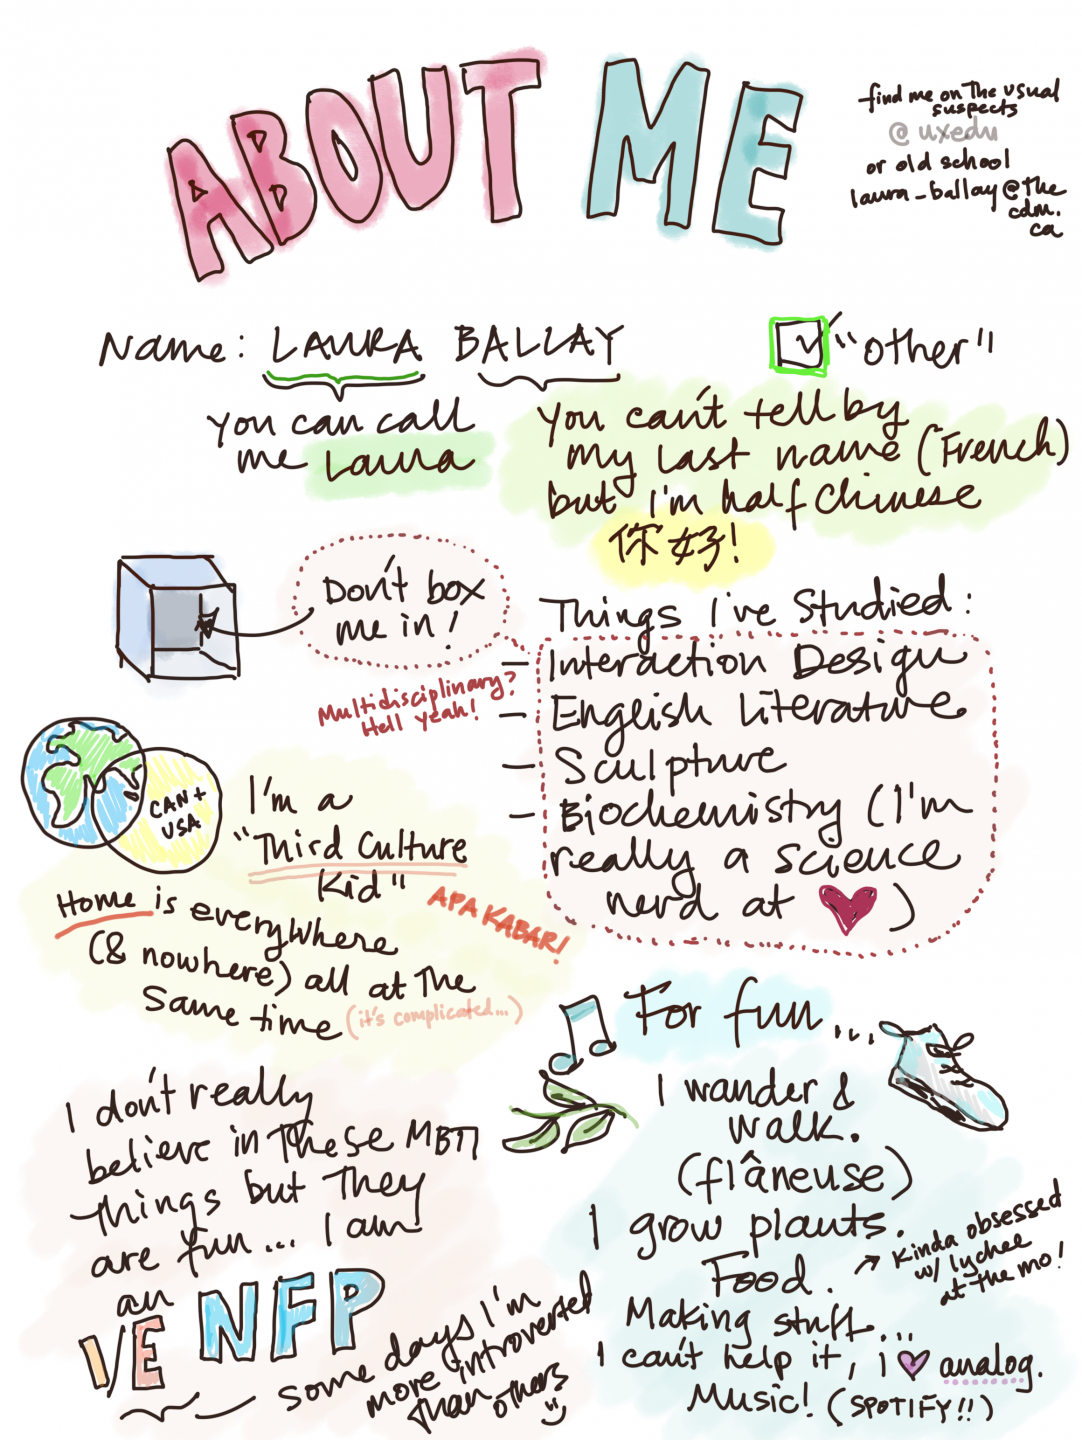 ABOUT ME
find me on the usual
suspects
@uxedu
or old school
laura_ballay@the
cdm.
ca
Name: LAURA BALLAY
You can call
me Laura
"other"
You can't tell by
my last name (French)
but I'm half Chinese
你好!
Don't box
me in!
Multidisciplinary?
Hell yeah!
Things I've Studied:
- Interaction Design
- English Literature
- Sculpture
- Biochemistry (I'm
really a science
nerd at ♥)
CAN +
USA
I'm a
"Third Culture
Kid"
APA KABAR!
Home is everywhere
(& nowhere) all at the
same time (it's complicated...)
For fun...
I wander &
walk.
(flâneuse)
I grow plants.
Kinda obsessed
w/ lychee
at the mo!
Food.
Making stuff...
I can't help it, i ♥ analog.
Music! (SPOTIFY!!)
I don't really
believe in these MBTI
things but they
are fun... I am
an
I/E NFP
some days I'm
more introverted
than others